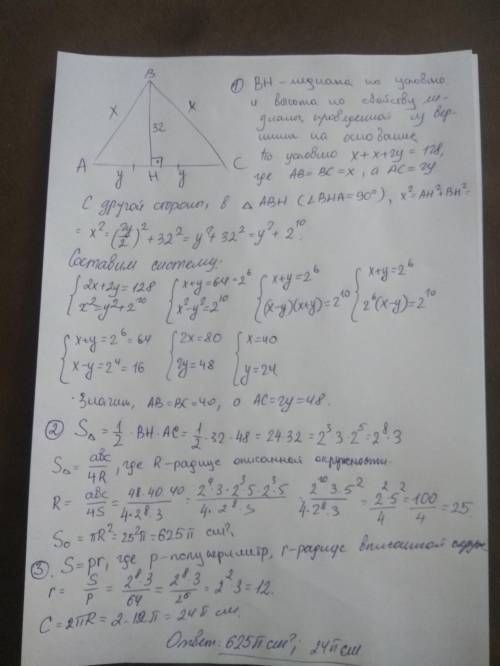 B
x x
32
A C
y H y
① BH – медиана по условию
и высота по свойству ме-
дианы, проведенной из вер-
шины на основание.
По условию x+x+2y = 128,
где AB=BC=x, а AC=2y
С другой стороны, в △ABH (∠BHA=90°), x²=AH²+BH²=
= x²=(2y/2)²+32²=y²+32²=y²+2¹⁰.
Составим систему:
{2x+2y=128 {x+y=64=2⁶ {x+y=2⁶ {x+y=2⁶
x²=y²+2¹⁰ x²-y²=2¹⁰ (x-y)(x+y)=2¹⁰ 2⁶(x-y)=2¹⁰
{x+y=2⁶=64 {2x=80 {x=40
x-y=2⁴=16 2y=48 y=24
Значит, AB=BC=40, а AC=2y=48.
② S△=1/2·BH·AC=1/2·32·48=24·32=2³·3·2⁵=2⁸·3
S△=abc/4R, где R-радиус описанной окружности.
R=abc/4S=48·40·40/4·2⁸·3=2⁴·3·2³·5·2³·5/4·2⁸·3=2¹⁰·3·5²/4·2⁸·3=2²·5²/4=100/4=25.
S₀=πR²=25²π=625π см²;
③. S=pr, где p-полупериметр, r-радиус вписанной окруж.
r=S/p=2⁸·3/64=2⁸·3/2⁶=2²·3=12.
C=2πR=2·12π=24π см.
Ответ: 625π см²; 24π см